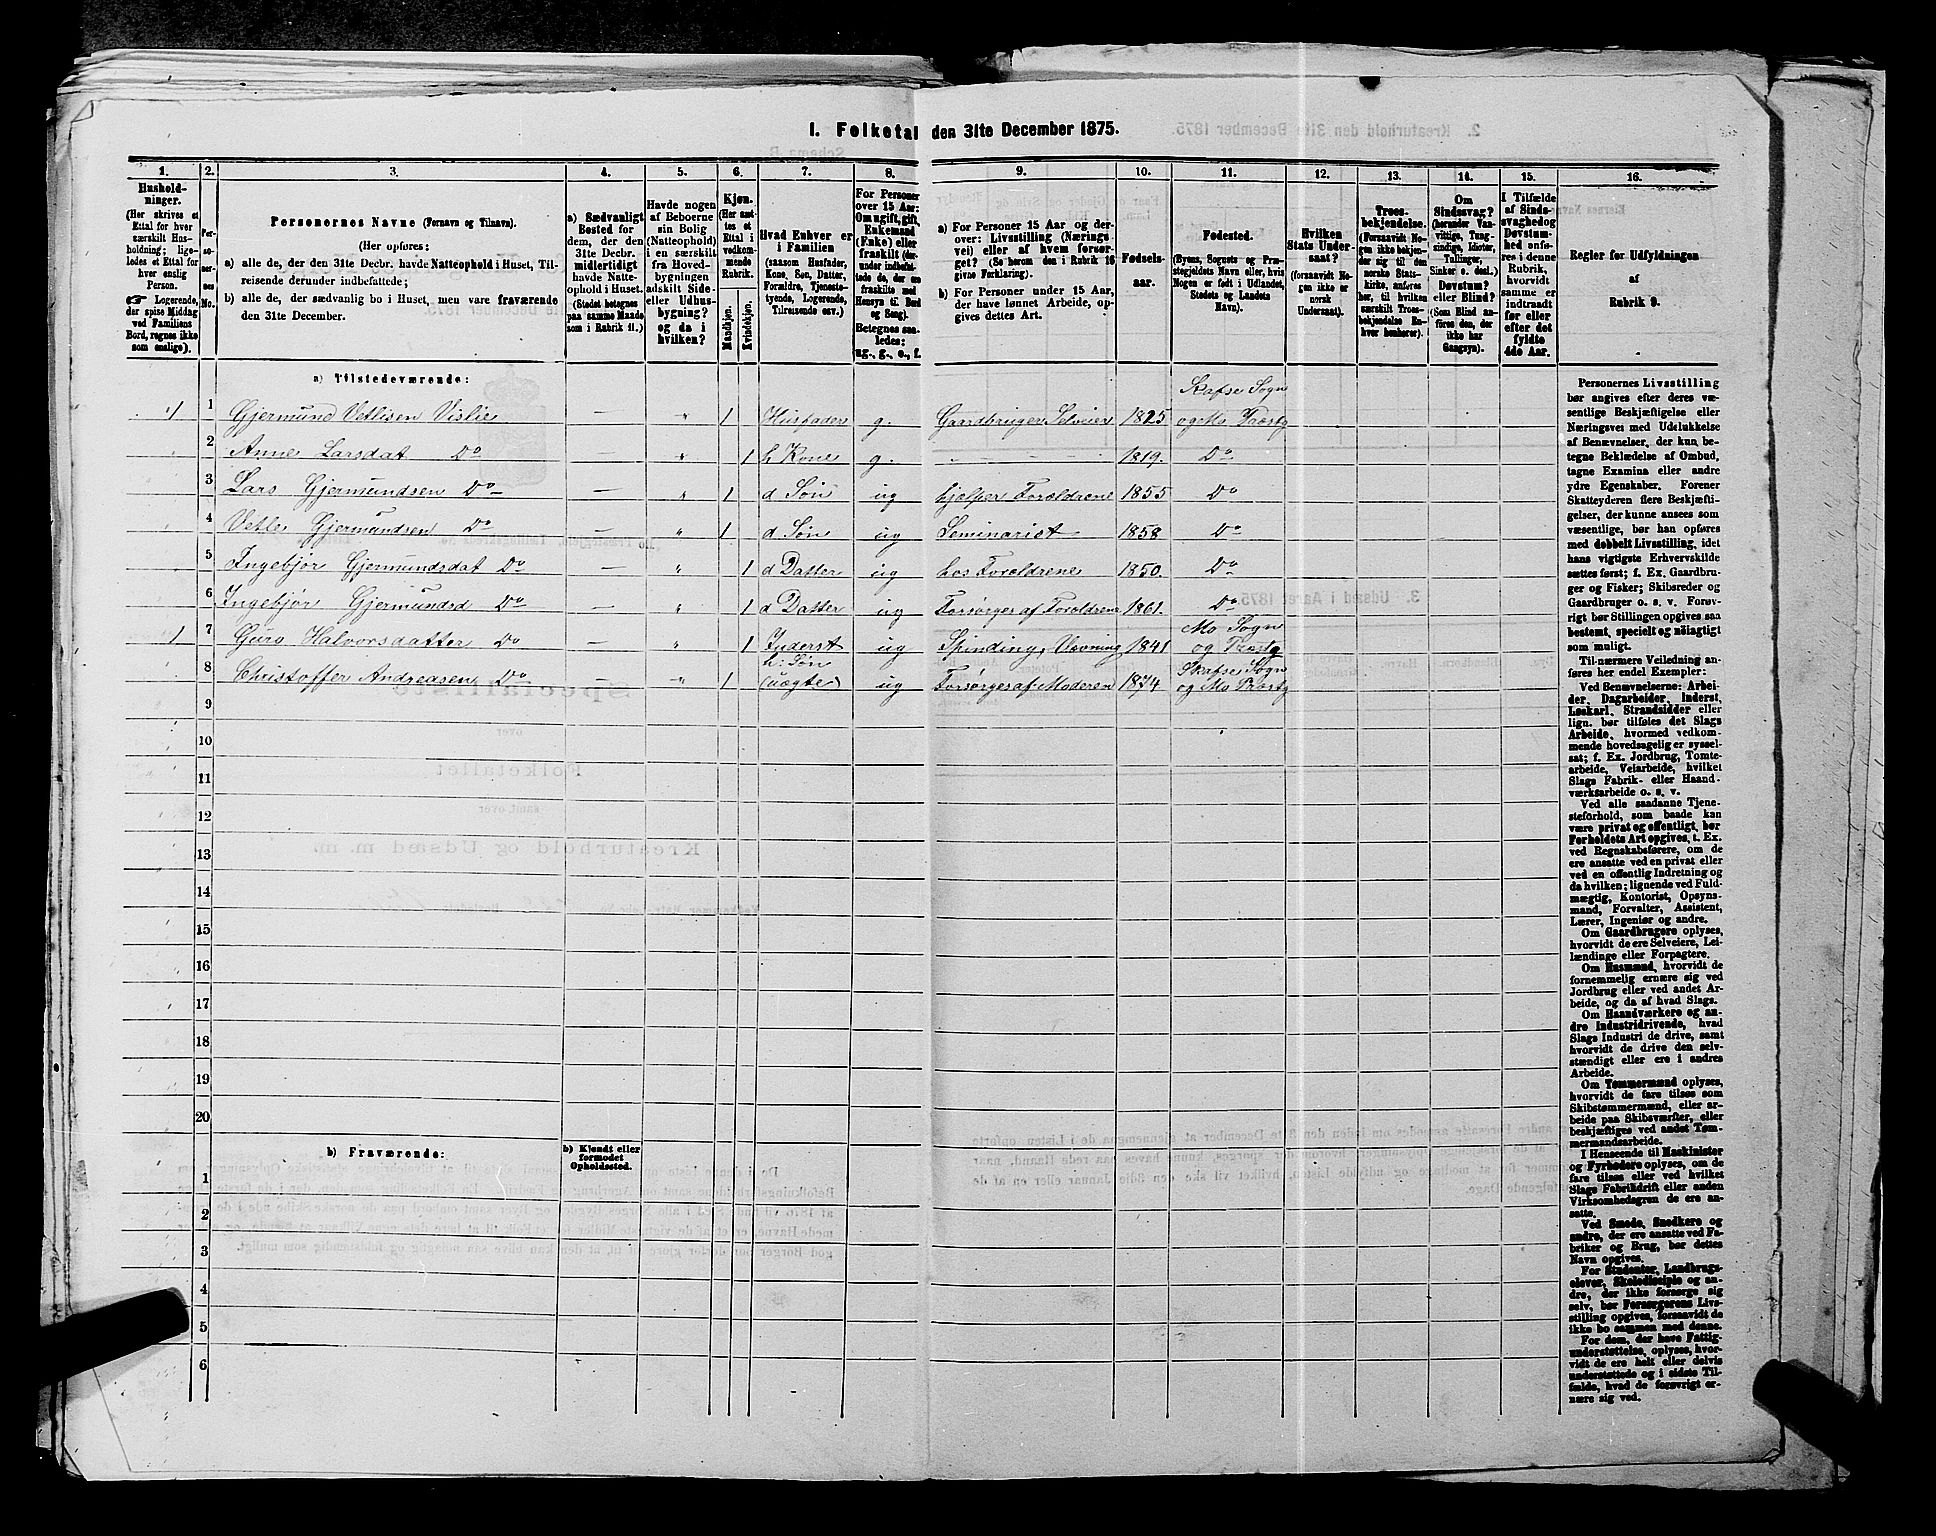 1. Folketal den 31te December 1875.
1. 2. 3. 4. 5. 6. 7. 8. 9. 10. 11. 12. 13. 14. 15. 16.
Husholdninger. (Her skrives et Ettal for hver særskilt Husholdning; ligeledes et Ettal for hver enslig Person. ☞ Logerende, der spise Middag ved Familiens Bord, regnes ikke som enslige).
Personernes No.
Personernes Navne (Fornavn og Tilnavn).
(Her opføres:
a) alle de, der den 31te Decbr. havde Natteophold i Huset, Tilreisende derunder indbefattede;
b) alle de, der sædvanlig bo i Huset, men vare fraværende den 31te December.
a) Sædvanligt Bosted for dem, der den 31te Decbr. midlertidigt havde Natteophold i Huset. (Stedet betegnes paa samme Maade som i Rubrik 11.)
Havde nogen af Beboerne sin Bolig (Natteophold) i en særskilt fra Hovedbygningen adskilt Side- eller Udhusbygning? og da i hvilken?
Kjøn. (Her sættes et Ettal i vedkommende Rubrik. Mandkjøn. Kvindekjøn.
Hvad Enhver er i Familien (saasom Husfader, Kone, Søn, Datter, Forældre, Tjenestetyende, Logerende, Tilreisende osv.)
For Personer over 15 Aar: Om ugift, gift, Enkemand (Enke) eller fraskilt (derunder indbefattede de, der ere fraskilte med Hensyn til Bord og Seng). Betegnes saaledes: ug., g., e., f.
a) For Personer 15 Aar og derover: Livsstilling (Næringsvei) eller af hvem forsørget? (Se herom den i Rubrik 16 givne Forklaring).
b) For Personer under 15 Aar, der have lønnet Arbeide, opgives dettes Art.
Fødselsaar.
Fødested. (Byens, Sognets og Præstegjeldets Navn eller, hvis Nogen er født i Udlandet, Stedets og Landets Navn).
Hvilken Stats Undersaat? (forsaavidt Nogen ikke er norsk Undersaat).
Troesbekjendelse. (Forsaavidt Nogen ikke bekjender sig til den norske Statskirke, anføres her, til hvilken særskilt Troesbekjendelse Enhver henhører).
Om Sindssvag? (herunder Vanvittige, Tungsindige, Idioter, Tullinger, Sinker o. desl.) Døvstum? eller Blind? (Som Blind anføres den, der ikke har Gangsyn).
I Tilfælde af Sindssvaghed og Døvstumhed anføres i denne Rubrik, hvorvidt samme er indtraadt før eller efter det fyldte 4de Aar.
Regler for Udfyldningen af Rubrik 9.
a) Tilstedeværende:
1 1 Gjermund Vetlisen Vislie — „ 1 Husfader g. Gaardbruger Selveier 1825 Skafse Sogn og Mo Præstg
2 Anne Larsdat Do „ 1 h Kone g. 1819. Do
3 Lars Gjermundsen Do — „ 1 d Søn ug hjelper Forældrene 1855 Do
4 Vetle Gjermundsen Do — „ 1 d Søn ug Seminarist 1858 Do
5 Ingebjør Gjermundsdat Do — „ 1 d Datter ug hos Forældrene 1850. Do
6 Ingebjør Gjermundsd Do — „ 1 d Datter ug Forsørges af Forældrene 1861. Do
1 7 Guro Halvorsdatter Do — „ 1 Inderst ug Spinding, Vævning 1841 Mo Sogn og Præstg
8 Christoffer Andreasen Do — „ 1 h: Søn (uægte) ug Forsørges af Moderen 1874 Skafse Sogn og Mo Præstg
9
10
11
12
13
14
15
16
17
18
19
20
b) Fraværende:
b) Kjendt eller formodet Opholdssted.
1
2
3
4
5
6
Personernes Livsstilling
bør angives efter deres væsentlige
Beskjæftigelse eller
Næringsvei med Udelukkelse
af Benævnelser, der kun betegne
Beklædelse af Ombud,
tagne Examina eller andre
ydre Egenskaber. Forener
Skatteyderen flere Beskjæftigelser,
der kunne ansees som
væsentlige, bør han opføres
med dobbelt Livsstilling, idet
hans vigtigste Erhvervskilde
sættes først; f. Ex. Gaardbruger
og Fisker; Skibsreder og
Gaardbruger o. s. v. Forøvrigt
bør Stillingen opgives saa
bestemt, specielt og nøiagtigt
som muligt.
Til nærmere Veiledning anføres
her endel Exempler:
Ved Benævnelserne: Arbeider,
Dagarbeider, Inderst,
Løskarl, Strandsidder eller
lign. bør tilføies det Slags
Arbeide, hvormed vedkommende
hovedsagelig er sysselsat;
f. Ex. Jordbrug, Tomtearbeide,
Veiarbeide, hvilket
Slags Fabrik- eller Haandværksarbeide
o. s. v.
Ved alle saadanne Tjenesteforhold,
som baade kan
være privat og offentligt, bør
Forholdets Art opgives, t. Ex.
ved Regnskabsførere, om de
ere ansatte ved en privat eller
ved en offentlig Indretning og
da hvilken; lignende ved Fuldmægtig,
Kontorist, Opsynsmand,
Forvalter, Assistent,
Lærer, Ingeniør og andre.
Om Gaardbrugere oplyses,
hvorvidt de ere Selveiere, Leilændinge
eller Forpagtere.
Om Husmænd, hvorvidt de
fornemmelig ernære sig ved
Jordbrug eller ved andet Arbeide,
og da af hvad Slags.
Om Haandværkere og andre
Industridrivende, hvad
Slags Industri de drive, samt
hvorvidt de drive den selvstændigt
eller ere i andres
Arbeide.
Om Tømmermænd oplyses,
hvorvidt de fare tilsøs som
Skibstømmermænd, eller arbeide
paa Skibsværfter, eller
beskjæftiges ved andet Tømmermandsarbeide.
I Henseende til Maskinister
og Fyrbødere oplyses, om de
fare tilsøs eller ved hvilket
Slags Fabrikdrift eller anden
Virksomhedsgren de ere ansatte.
Ved Smede, Snedkere og
andre, der ere ansatte ved Fabriker
og Brug, bør dettes
Navn opgives.
For Studenter, Landbrugselever,
Skoledisciple og andre,
der ikke forsørge sig
selv, bør Forsørgerens Livsstilling
opgives, forsaavidt de
ikke bo sammen med denne.
For dem, der have Fattigunderstøttelse,
oplyses, hvorvidt
de ere helt eller delvis
understøttede og i sidste Tilfælde,
hvad de forøvrigt ernære
sig ved.